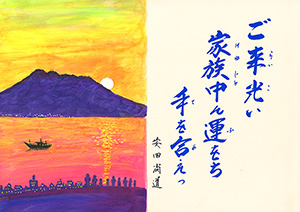 ご来光い
家族中ん運をち
手を合えっ
安田尚道